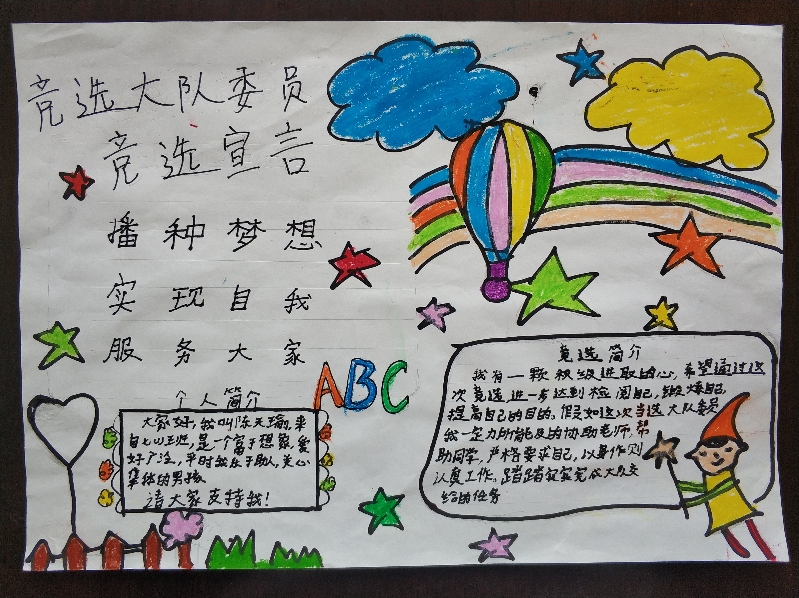 竞选大队委员
竞选宣言
播种梦想
实现自我
服务大家
ABC
个人简介
大家好，我叫陈天瑜，来
自七(1)班，是一个富于想象，爱
好广泛，平时我乐于助人，关心
集体的男孩
请大家支持我！
竞选简介
我有一颗积极进取的心，希望通过这
次竞选，进一步达到检阅自己，锻炼自己，
提高自己的目的。假如这次当选大队委员
我一定力所能及的协助老师，帮
助同学，严格要求自己，以身作则
认真工作。踏踏实实完成大队交
给的任务